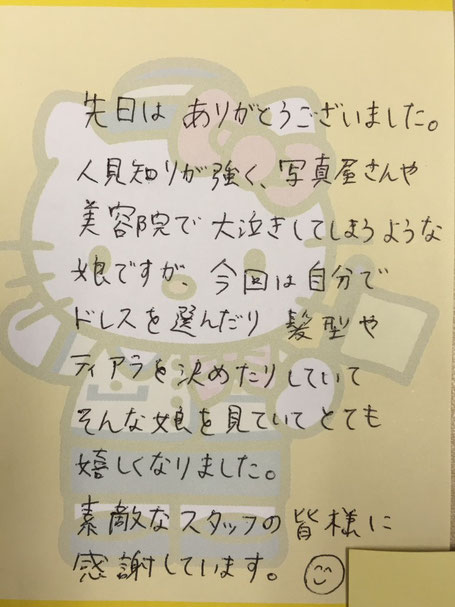 先日は ありがとうございました。
人見知りが強く、写真屋さんや
美容院で大泣きしてしまうような
娘ですが、今回は自分で
ドレスを選んだり 髪型や
ティアラを決めたりしていて
そんな娘を見ていてとても
嬉しくなりました。
素敵なスタッフの皆様に
感謝しています。